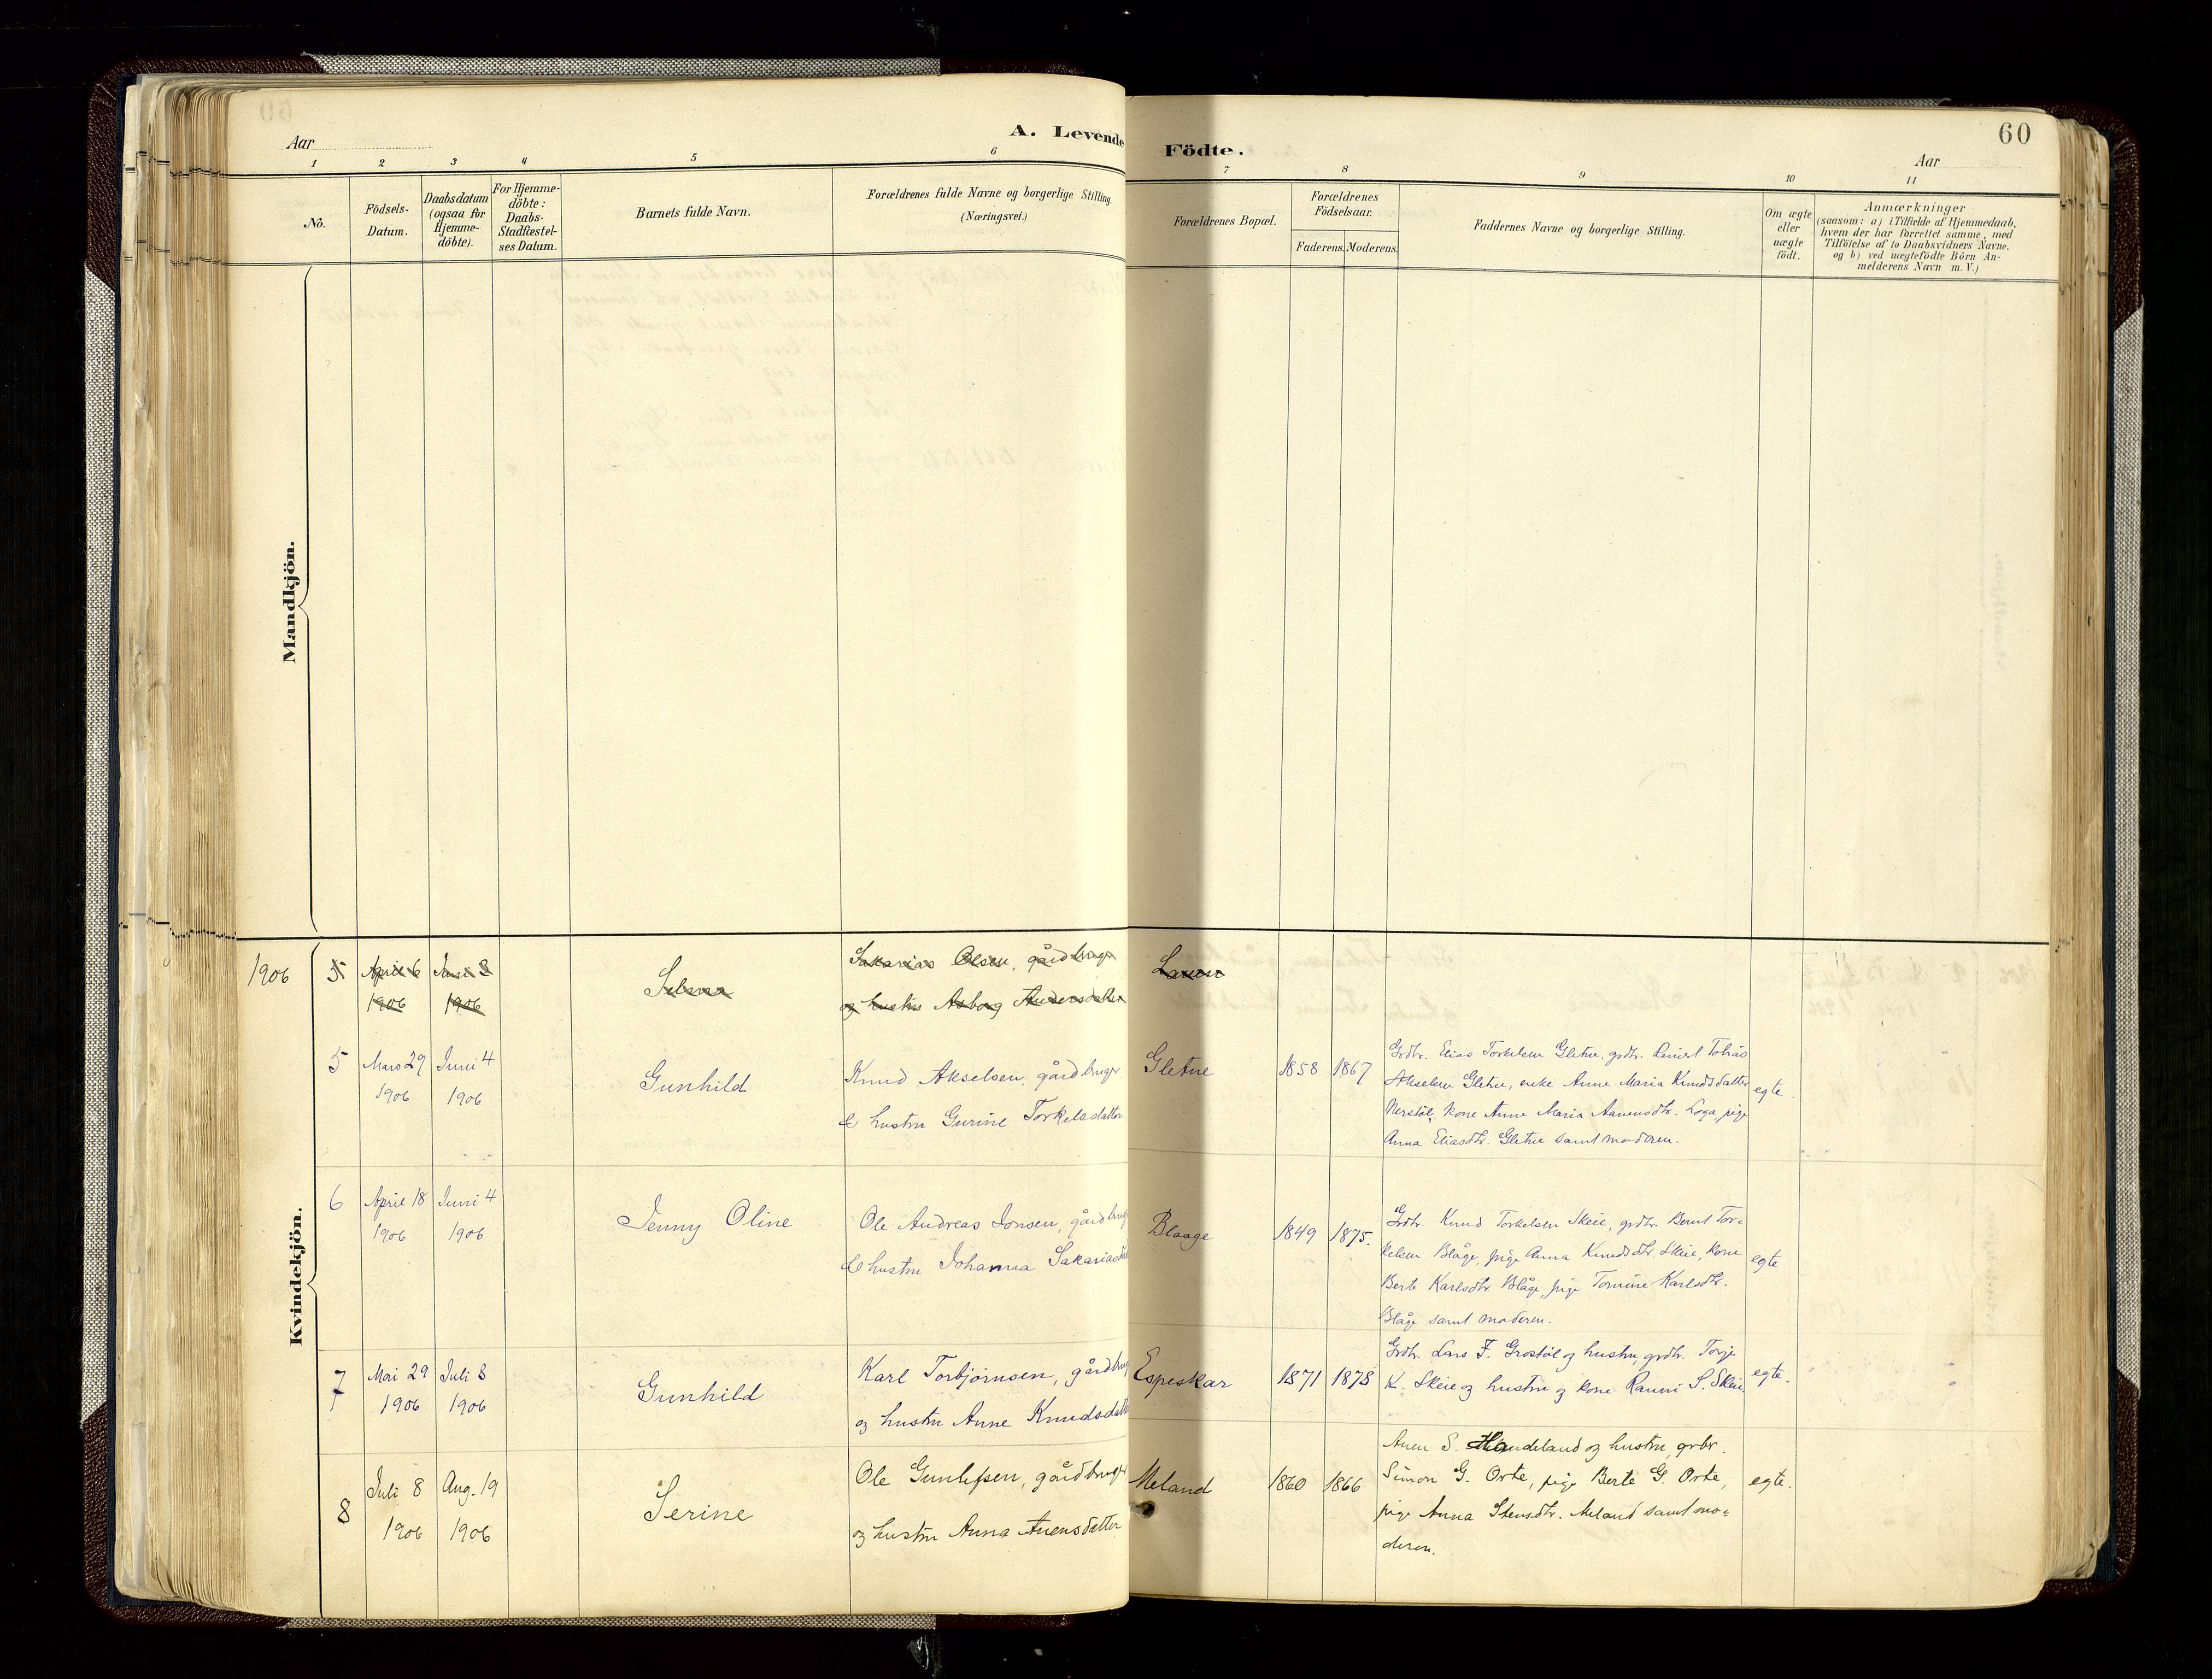 60
Aar
A. Levende Födte.
Aar
1 2 3 4 5 6 7 8 9 10 11
No.
Födsels-
Datum.
Daabsdatum
(ogsaa for
Hjemme-
döbte).
For Hjemme-
döbte:
Daabs-
Stadfæstel-
ses Datum.
Barnets fulde Navn.
Forældrenes fulde Navne og borgerlige Stilling.
(Næringsvei.)
Forældrenes Bopæl.
Forældrenes
Födselsaar.
Faderens. Moderens.
Faddernes Navne og borgerlige Stilling.
Om ægte
eller
uægte
födt.
Anmærkninger
(saasom: a) i Tilfælde af Hjemmedaab,
hvem der har forrettet samme, med
Tilföielse af to Daabsvidners Navne,
og b) ved uægtefödte Börn An-
melderens Navn m. V.)
Mandkjön.
Kvindekjön.
1906
5
April 6
1906
Juni 3
1906
Selma
Sakarias Olsen, gårdbruger
og hustru Asborg Andersdatter
5
Mars 29
1906
Juni 4
1906
Gunhild
Knud Akselsen, gårdbruger
& hustru Gurine Torkelsdatter
Gletne
1858
1867
Grdbr. Elias Torkelsen Gletne, grdbr. Tobias
Akselsen Gletne, enke Anne Maria Knudsdatter
Nerstøl, kone Anne Maria Aanensdtr. Loga, pige
Anna Eliasdtr. Gletne samt moderen.
egte.
6
April 18
1906
Juni 4
1906
Jenny Oline
Ole Andreas Jonsen, gårdbrug
& hustru Johanna Sakariasdatt
Blaage
1849
1875.
Grdbr. Knud Torkelsen Skeie, grdbr. Bernt Tor=
kelsen Blåge, pige Anna Knudsdtr. Skeie, kone
Berte Karlsdtr. Blåge, pige Tomine Karlsdtr.
Blåge samt moderen.
egte
7
Mai 29
1906
Juli 8
1906
Gunhild
Karl Torbjørnsen, gårdbrug
og hustru Anne Knudsdatt
Espeskar
1871
1878
Grdbr. Lars F. Grostøl og hustru, grdbr. Torje
K. Skeie og hustru og kone Ranni S. Skeie
egte.
8
Juli 8
1906
Aug. 19
1906
Serine
Ole Gunlefsen, gårdbruger
og hustru Anna Auensdatter
Meland
1860
1866
Auen S. Handeland og hustru, grbr.
Simon G. Orte, pige Berte G. Orte,
pige Anna Stensdtr. Meland samt mo=
deren.
egte.